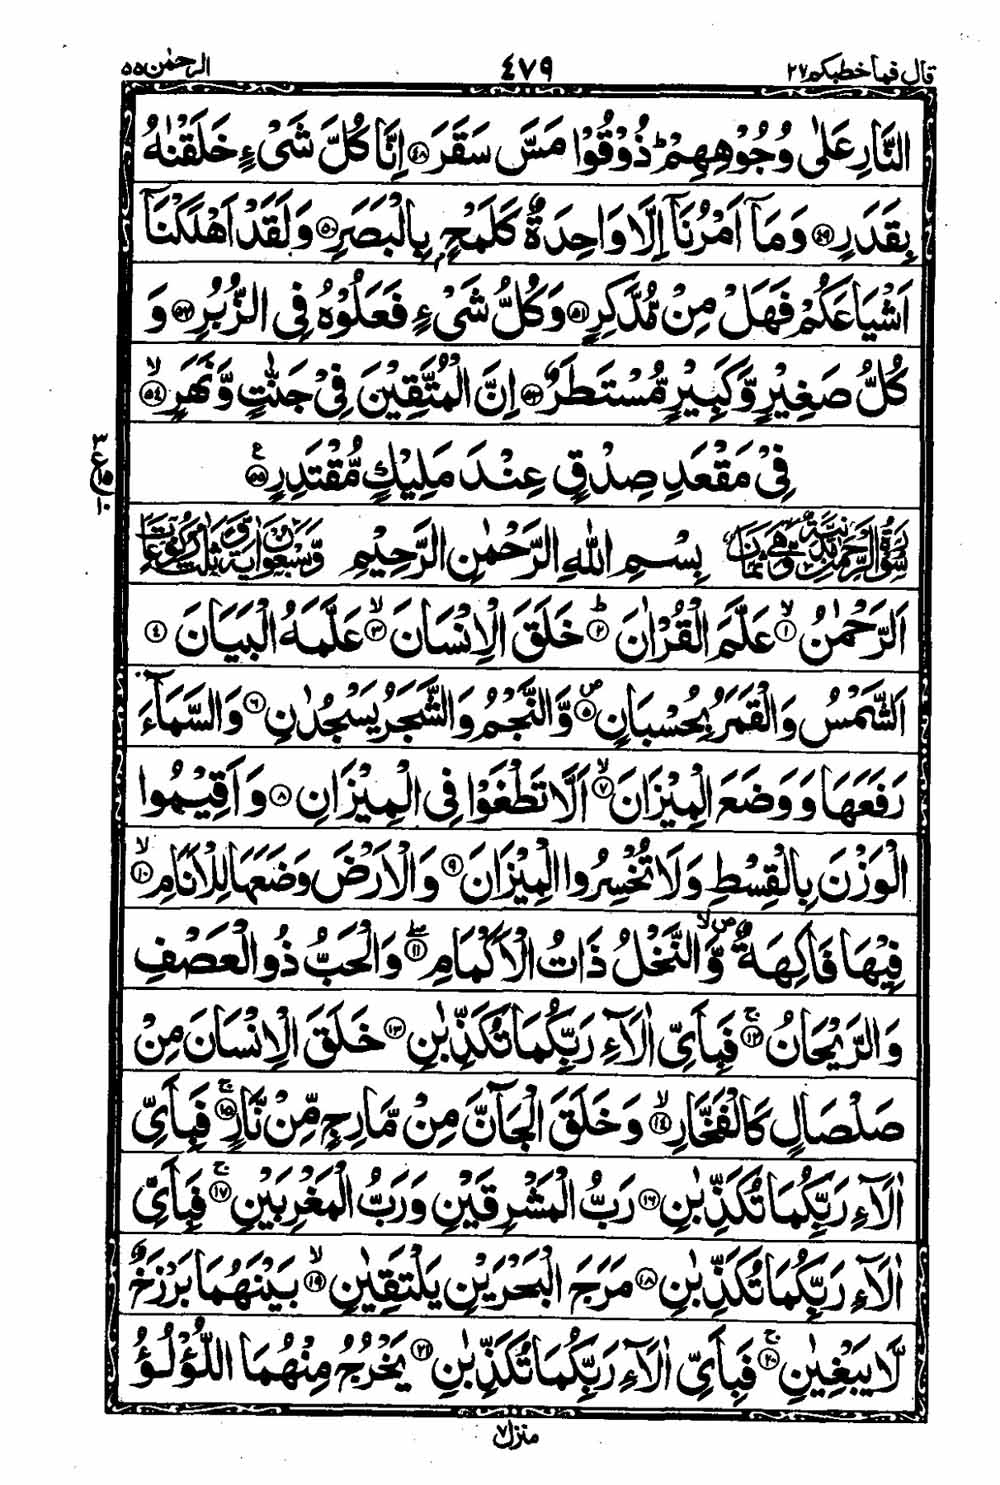 قال فما خطبکم ٢٧
٤٧٩
الرحمٰن ٥٥
النَّارِ عَلٰى وُجُوْهِهِمْ ؕ ذُوْقُوْا مَسَّ سَقَرَ ﴿٤٨﴾ اِنَّا كُلَّ شَىْءٍ خَلَقْنٰهُ
بِقَدَرٍ ﴿٤٩﴾ وَمَاۤ اَمْرُنَاۤ اِلَّا وَاحِدَةٌ كَلَمْحٍۭ بِالْبَصَرِ ﴿٥٠﴾ وَلَقَدْ اَهْلَكْنَاۤ
اَشْيَاعَكُمْ فَهَلْ مِنْ مُّدَّكِرٍ ﴿٥١﴾ وَكُلُّ شَىْءٍ فَعَلُوْهُ فِى الزُّبُرِ ﴿٥٢﴾ وَ
كُلُّ صَغِيْرٍ وَّكَبِيْرٍ مُّسْتَطَرٌ ﴿٥٣﴾ اِنَّ الْمُتَّقِيْنَ فِىْ جَنّٰتٍ وَّنَهَرٍ ۙ﴿٥٤﴾
فِىْ مَقْعَدِ صِدْقٍ عِنْدَ مَلِيْكٍ مُّقْتَدِرٍ ﴿٥٥﴾ ع
٣ ع ١٥ ١٠
سُوْرَةُ الرَّحْمٰنِ مَدَنِيَّةٌ وَّهِىَ ثَمَانٌ
بِسْمِ اللهِ الرَّحْمٰنِ الرَّحِيْمِ
وَّسَبْعُوْنَ اٰيَةً وَّثَلٰثُ رُكُوْعَاتٍ
اَلرَّحْمٰنُ ۙ﴿١﴾ عَلَّمَ الْقُرْاٰنَ ؕ﴿٢﴾ خَلَقَ الْاِنْسَانَ ۙ﴿٣﴾ عَلَّمَهُ الْبَيَانَ ﴿٤﴾
اَلشَّمْسُ وَالْقَمَرُ بِحُسْبَانٍ ۪﴿٥﴾ وَّالنَّجْمُ وَالشَّجَرُ يَسْجُدٰنِ ﴿٦﴾ وَالسَّمَآءَ
رَفَعَهَا وَوَضَعَ الْمِيْزَانَ ۙ﴿٧﴾ اَلَّا تَطْغَوْا فِى الْمِيْزَانِ ﴿٨﴾ وَاَقِيْمُوا
الْوَزْنَ بِالْقِسْطِ وَلَا تُخْسِرُوا الْمِيْزَانَ ﴿٩﴾ وَالْاَرْضَ وَضَعَهَا لِلْاَنَامِ ۙ﴿١٠﴾
فِيْهَا فَاكِهَةٌ ۪ۙ وَّالنَّخْلُ ذَاتُ الْاَكْمَامِ ۖ﴿١١﴾ وَالْحَبُّ ذُو الْعَصْفِ
وَالرَّيْحَانُ ۚ﴿١٢﴾ فَبِاَىِّ اٰلَآءِ رَبِّكُمَا تُكَذِّبٰنِ ﴿١٣﴾ خَلَقَ الْاِنْسَانَ مِنْ
صَلْصَالٍ كَالْفَخَّارِ ۙ﴿١٤﴾ وَخَلَقَ الْجَآنَّ مِنْ مَّارِجٍ مِّنْ نَّارٍ ۚ﴿١٥﴾ فَبِاَىِّ
اٰلَآءِ رَبِّكُمَا تُكَذِّبٰنِ ﴿١٦﴾ رَبُّ الْمَشْرِقَيْنِ وَرَبُّ الْمَغْرِبَيْنِ ۚ﴿١٧﴾ فَبِاَىِّ
اٰلَآءِ رَبِّكُمَا تُكَذِّبٰنِ ﴿١٨﴾ مَرَجَ الْبَحْرَيْنِ يَلْتَقِيٰنِ ۙ﴿١٩﴾ بَيْنَهُمَا بَرْزَخٌ
لَّا يَبْغِيٰنِ ۚ﴿٢٠﴾ فَبِاَىِّ اٰلَآءِ رَبِّكُمَا تُكَذِّبٰنِ ﴿٢١﴾ يَخْرُجُ مِنْهُمَا اللُّؤْلُؤُ
منزل ٧